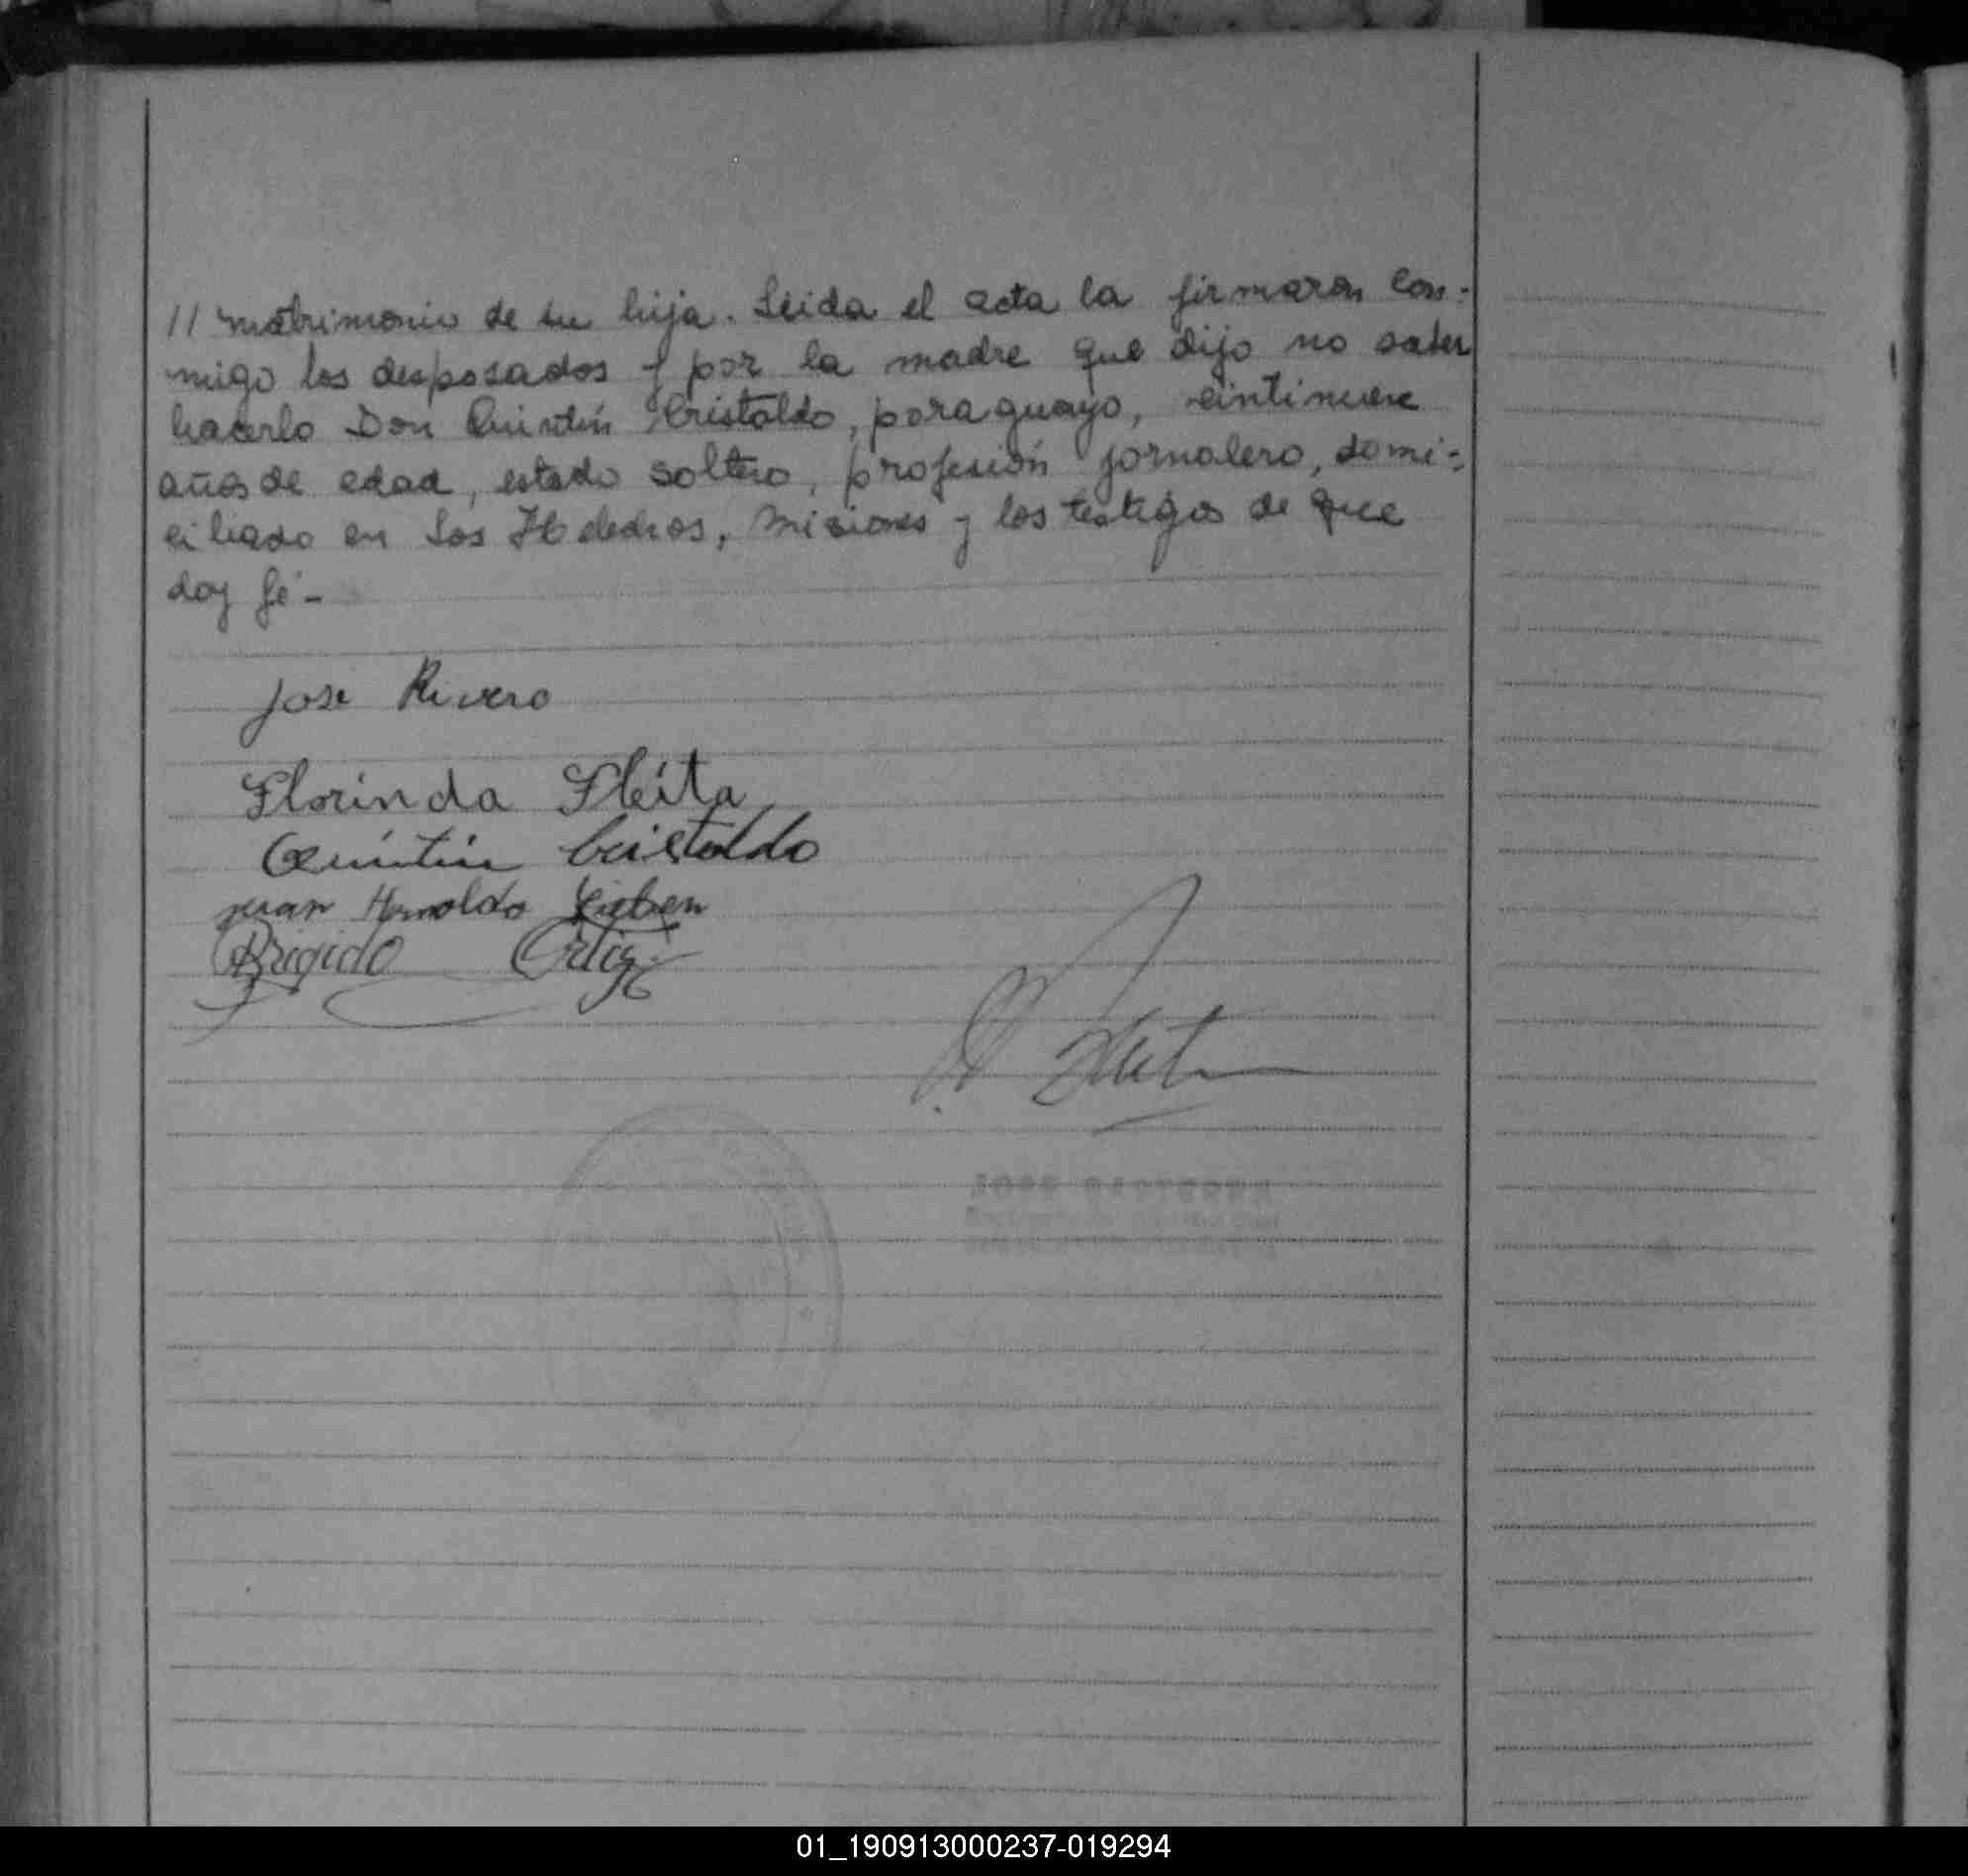 // matrimonio de su hija. Leida el acta la firmaron con-
migo los desposados y por la madre que dijo no saber
hacerlo Don Quintín Cristaldo, paraguayo, veintinueve
años de edad, estado soltero, profesión jornalero, domi-
ciliado en Los Helechos, Misiones y los testigos de que
doy fé-
José Rivero
Florinda Fleita
Quintín Cristaldo
Juan Harnoldo
Brigido Ortiz
01_190913000237-019294